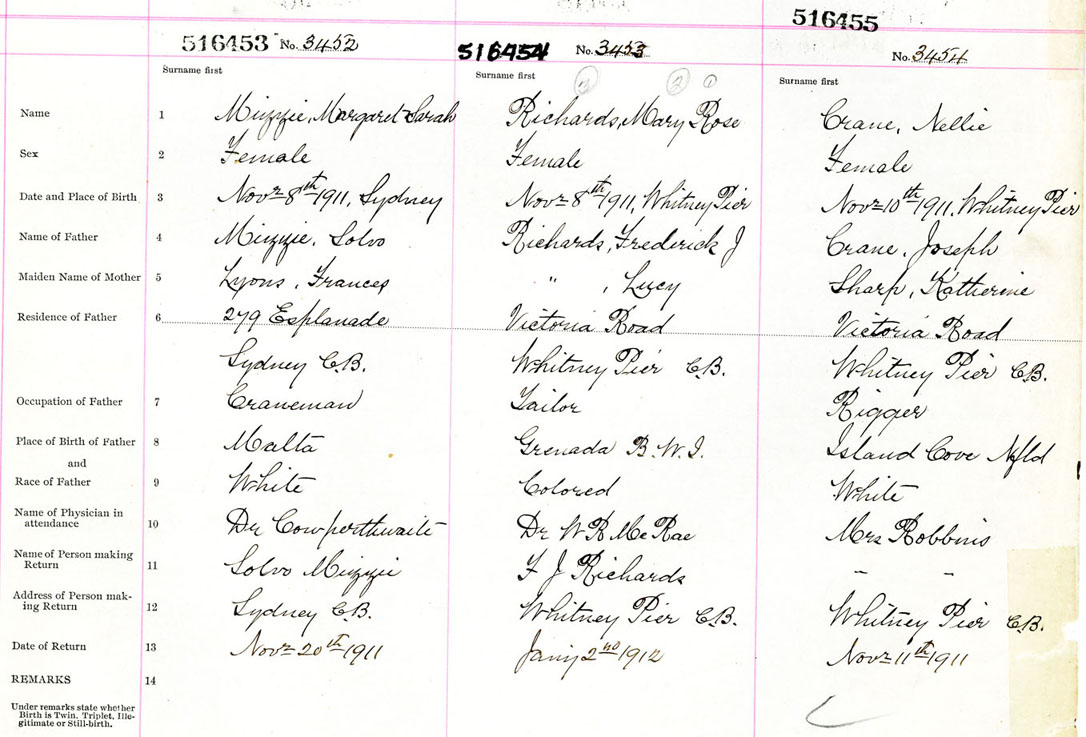 516455
516453 No. 3452
516454 No. 3453
No. 3454
Surname first Surname first Surname first
Name 1 Muzzie, Margaret Sarah Richards, Mary Rose Crane, Nellie
Sex 2 Female Female Female
Date and Place of Birth 3 Novr 8th 1911, Sydney Novr 8th 1911, Whitney Pier Novr 10th 1911, Whitney Pier
Name of Father 4 Muzzie, Solvo Richards, Frederick J Crane, Joseph
Maiden Name of Mother 5 Lyons, Frances " , Lucy Sharp, Katherine
Residence of Father 6 279 Esplanade Victoria Road Victoria Road
Sydney C.B. Whitney Pier C.B. Whitney Pier C.B.
Occupation of Father 7 Craneman Tailor Rigger
Place of Birth of Father 8 Malta Grenada B.W.I. Island Cove Nfld
and
Race of Father 9 White Colored White
Name of Physician in
attendance 10 Dr Cowperthwaite Dr W R McRae Mrs Robbins
Name of Person making
Return 11 Solvo Muzzie F J Richards - -
Address of Person mak-
ing Return 12 Sydney C.B. Whitney Pier C.B. Whitney Pier C.B.
Date of Return 13 Novr 20th 1911 Jany 2nd 1912 Novr 11th 1911
REMARKS 14
Under remarks state whether
Birth is Twin, Triplet, Ille-
gitimate or Still-birth.